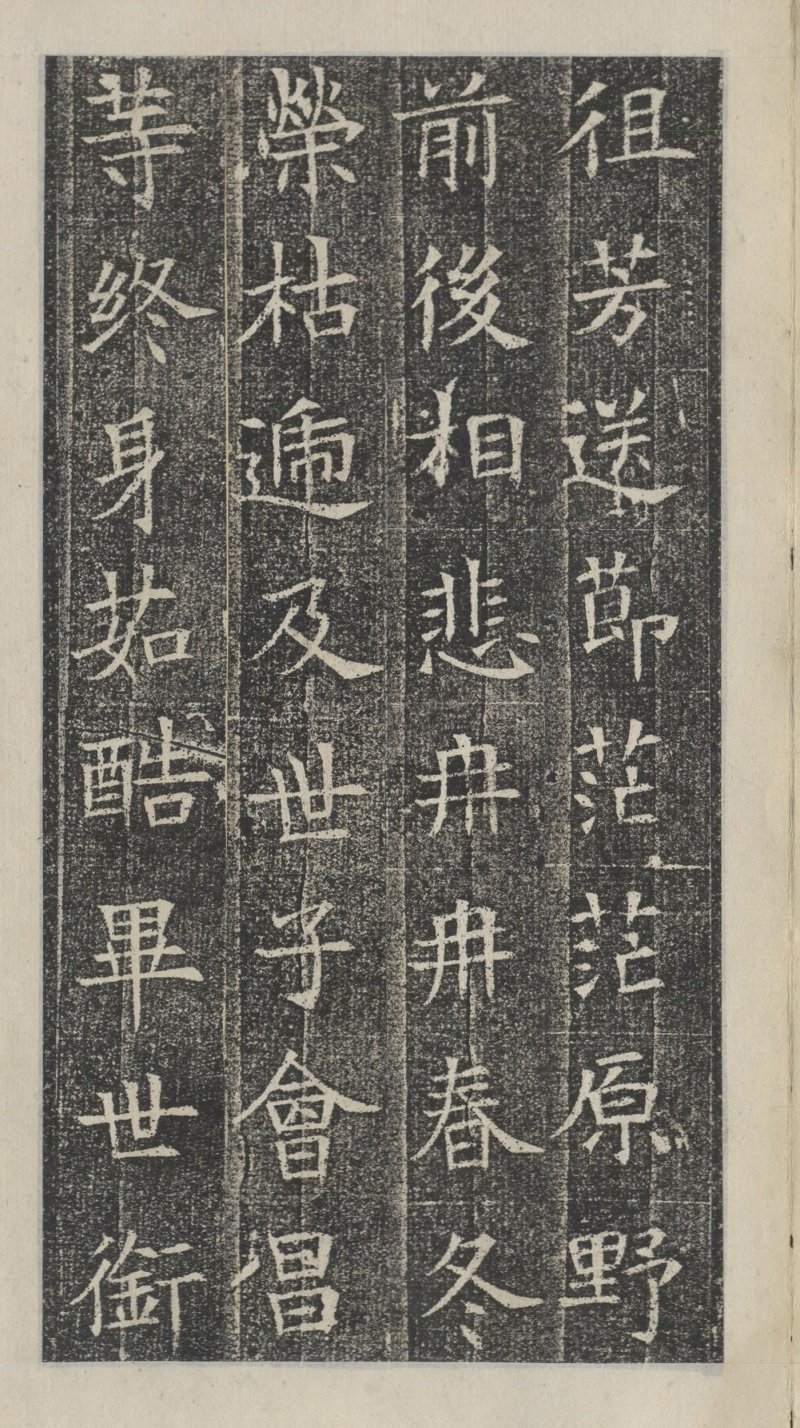 徂芳送莭茫茫原野
前後相悲冉冉春冬
榮枯遞及世子會倡
䓁終身茹酷畢世銜